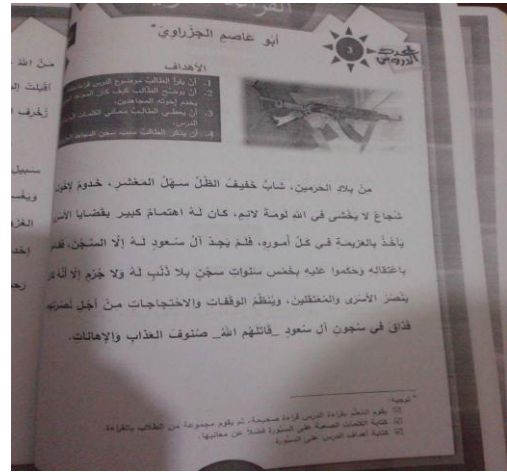 أبو عاصم الجزراوي*
3
الأهداف
1- أن يقرأ الطالب موضوع الدرس قراءة
2- أن يوضح الطالب كيف كان
يخدم إخوته المجاهدين.
3- أن يعطي الطالب معاني الكلمات
الدرس.
4- أن يذكر الطالب سبب سجن المجاهد
من بلاد الحرمين، شاب خفيف الظل سهل المعشر، خدوم
شجاع لا يخشى في الله لومة لائم، كان له اهتمام كبير بقضايا
يأخذ بالعزيمة في كل أموره، فلم يجد آل سعود له إلا السجن،
باعتقاله وحكموا عليه بخمس سنوات سجن بلا ذنب له ولا جرم إلا أنه
ينصر الأسرى والمعتقلين، وينظم الوقفات والاحتجاجات من أجل
فذاق في سجون آل سعود _قاتلهم الله_ صنوف العذاب والإهانات.
* توجيه:
يقوم المعلم بقراءة الدرس قراءة صحيحة، ثم يقوم مجموعة من الطلاب بالقراءة.
كتابة الكلمات الصعبة على السبورة فضلا عن معانيها.
كتابة أهداف الدرس على السبورة.